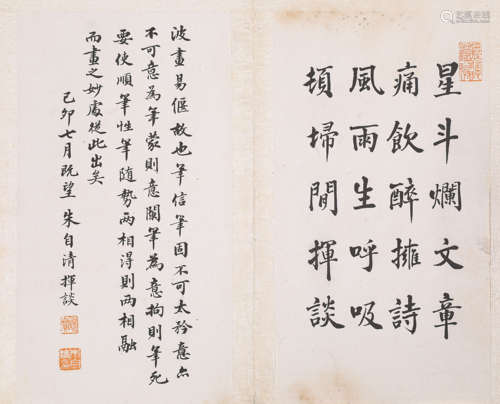 星斗爛文章
痛飲醉擁詩
風雨生呼吸
頃埽閒揮談
波畫易偃故也筆信筆固不可太矜意亦
不可意為筆蒙則意闌筆為意拘則筆死
要使順筆性筆隨勢兩相得則兩相融
而畫之妙處從此出矣
己卯七月既望 朱自清揮談